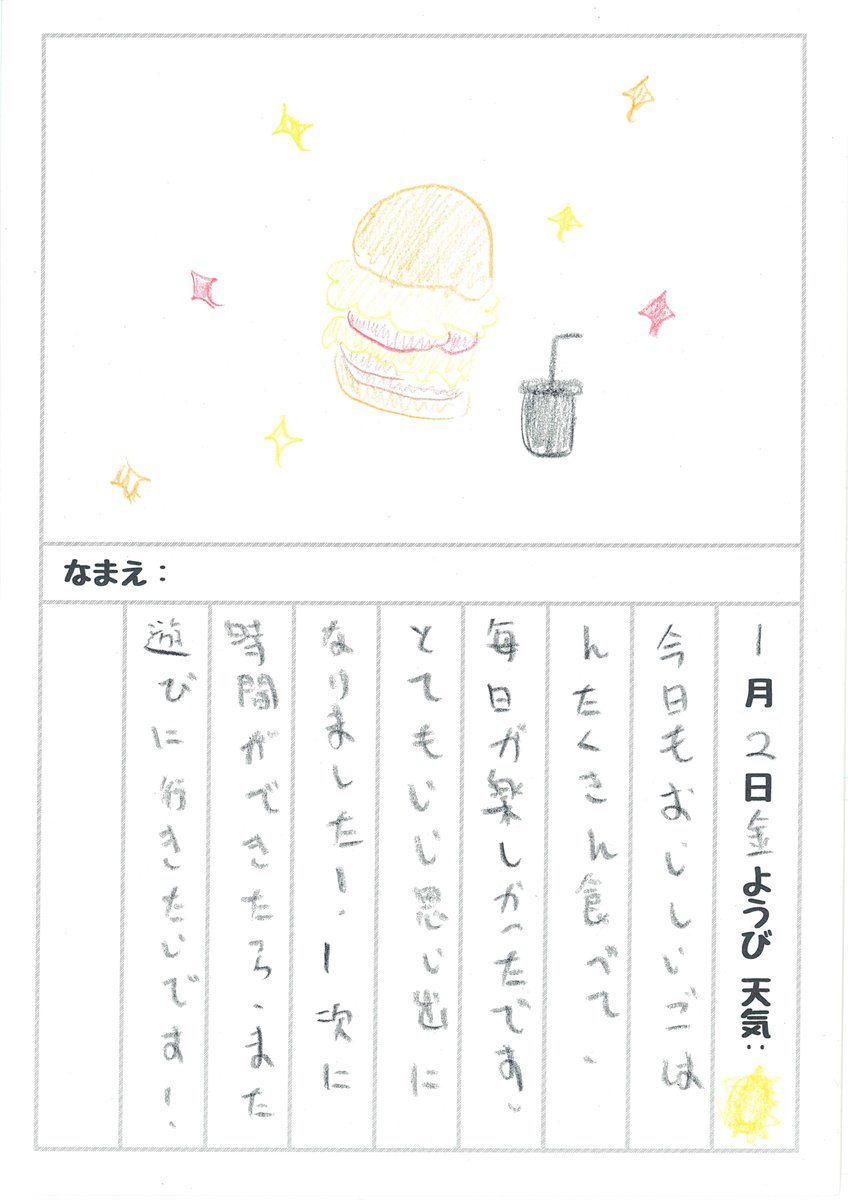 なまえ：
1月2日金ようび 天気：
今日もおいしいごは
んたくさん食べて、
毎日が楽しかったです。
とてもいい思い出に
なりました！ー次に
時間ができたら、また
遊びに行きたいです！